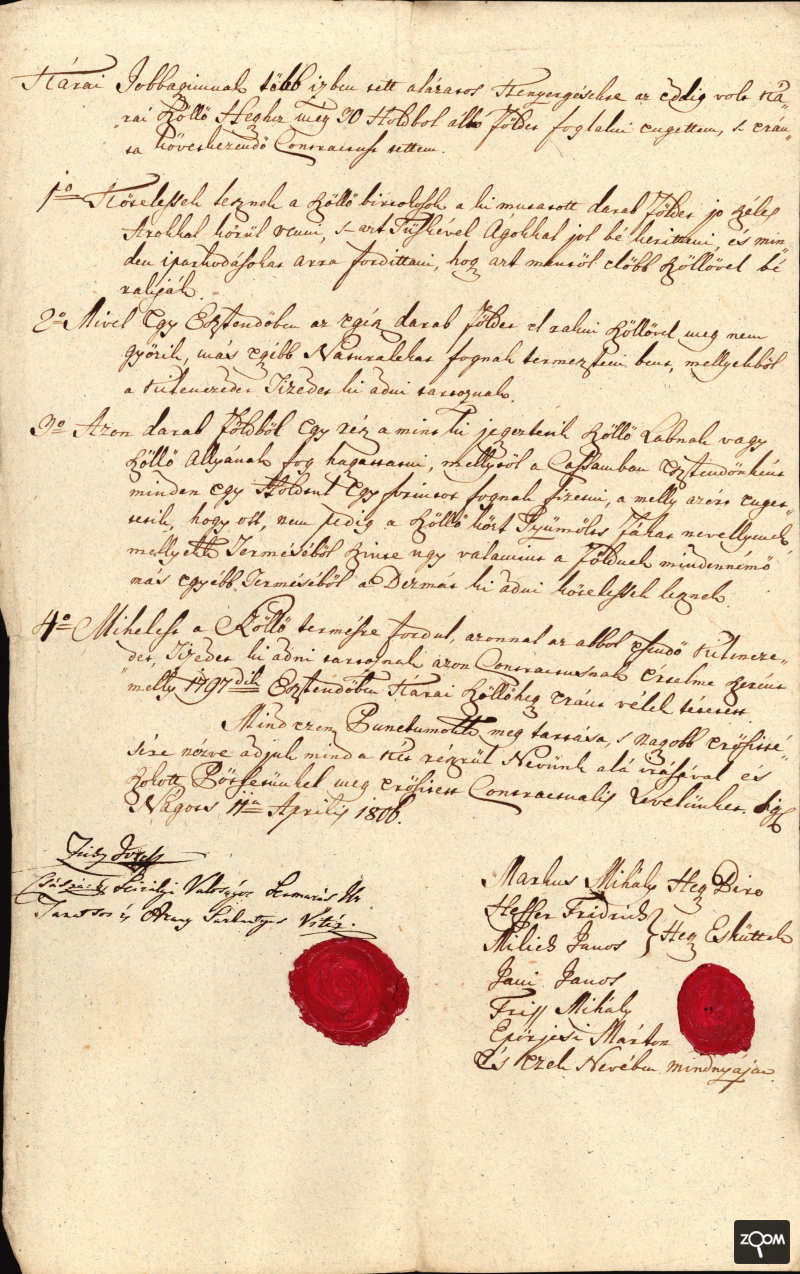 Kárai Jobbagimnak több izben tett alázatos Kenyergésekre az eddig volt Ká„
„rai Szőllő Heghez még 30 Holdbol álló Földet foglalni engettem, s erán„
ta következendő Contractust tettem.
1o Kötelessek lesznek a Szöllö birtokosok a ki mutatott darab Földet jo széles
Árokkal körül venni, s azt Tüskével Ágokkal jol bé keritteni, és min„
den iparkodásokat arra fordittani, hog azt mentöl elöbb Szöllövel bé
rakják.
2o Mivel Egy Esztendőben az egész darab Földet el rakni Szöllövel meg nem
győzik, más egyébb Naturalekat fognak termeszteni bent, mellyekböl
a Kilenczedet Tizedet ki adni tartoznak.
3o Azon darab Földböl Egy rész a mint ki jegeztetik Szöllö Labnak vagy
Szöllö Allyának fog hagattatni, mellytöl a Cassamban esztendönként
minden egy Holdtul Egy forintot fognak fizetni, a melly azért enget„
tetik, hogy ott, nem pedig a Szöllö közt Gyümölts Fákat nevellyenek
mellyek Terméséböl szinte ugy valamint a Földnek mindennémö
más egyébb Terméséböl a Dezmát ki adni kötelessek lesznek.
4o Mihelest a Szöllö termésre fordul, azonnal az abbol esendö Kilencze„
det, Tizedet ki adni tartoznak azon Contractusnak értelme szerént
melly 1797dik Esztendöben Kárai Szöllöheg eránt vélek tétetett.
Mind ezen Punctumok meg tartása, s nagobb erössitté„
sére nézve adjuk mind a két részrül Nevünk alá irásával és
szokott Pötsétünkel meg erösitett Contractualis Levelünket. Sig
Nágots 11a Aprilis 1806.
Császári Királyi Valoságos Kamarás Ur
Tanátsos és Arany Sarkantyus Vitéz.
Markus Mihály Heg Biro
Heffer Fridrich
Milich Janos } Heg Esküttek
Jani Janos
Friss Mihály
Epörjesi Márton
És ezek Nevében mindnyájan
ZOOM